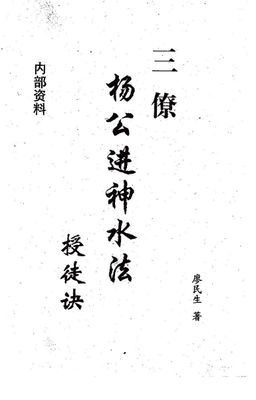 三僚
杨公进神水法
授徒诀
内部资料
廖民生 著